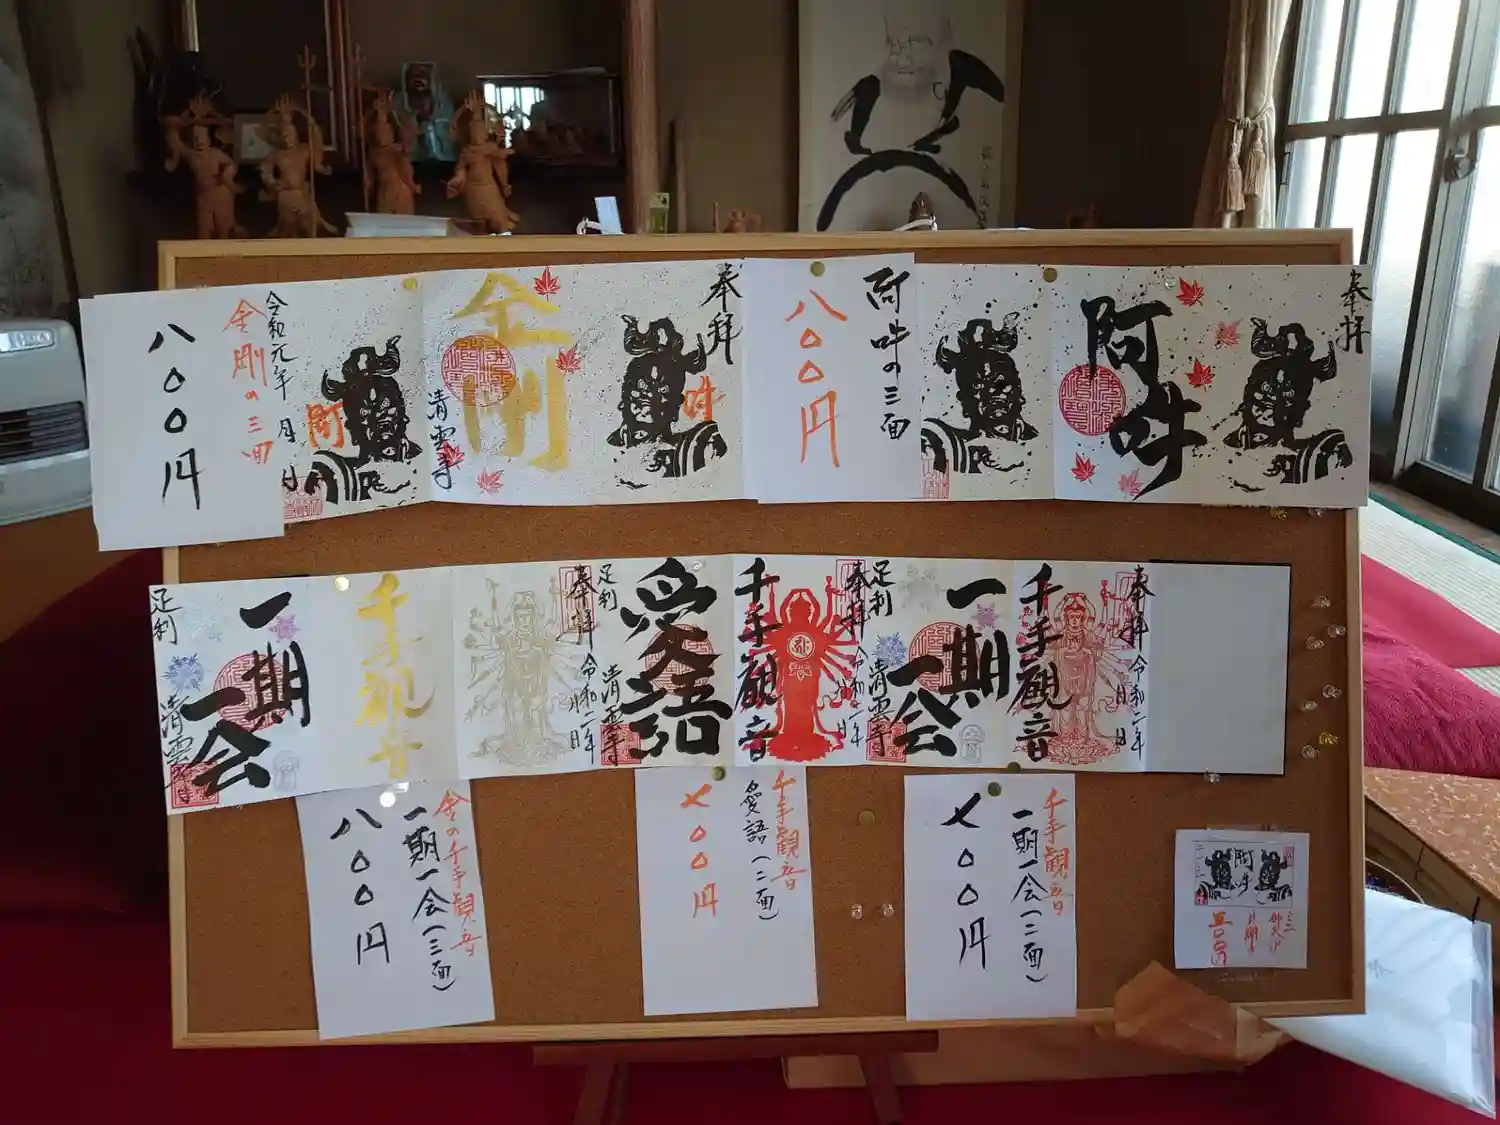 八〇〇円
金剛の三面
令和元年 月 日
阿
金剛
清雲寺
奉拝
吽
八〇〇円
阿吽の三面
阿吽
奉拝
足利
一期一会
清雲寺
千手観音
奉拝
令和二年 月 日
足利
愛語
清雲寺
千手観音
奉拝
令和二年 月 日
足利
一期一会
清雲寺
千手観音
奉拝
令和二年 月 日
金の千手観音
一期一会(三面)
八〇〇円
千手観音
愛語(二面)
七〇〇円
千手観音
一期一会(二面)
七〇〇円
阿吽
五〇〇円